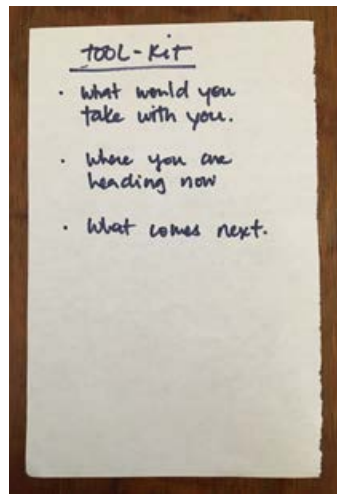 TOOL-KIT
· What would you
take with you.
· Where you are
heading now
· What comes next.